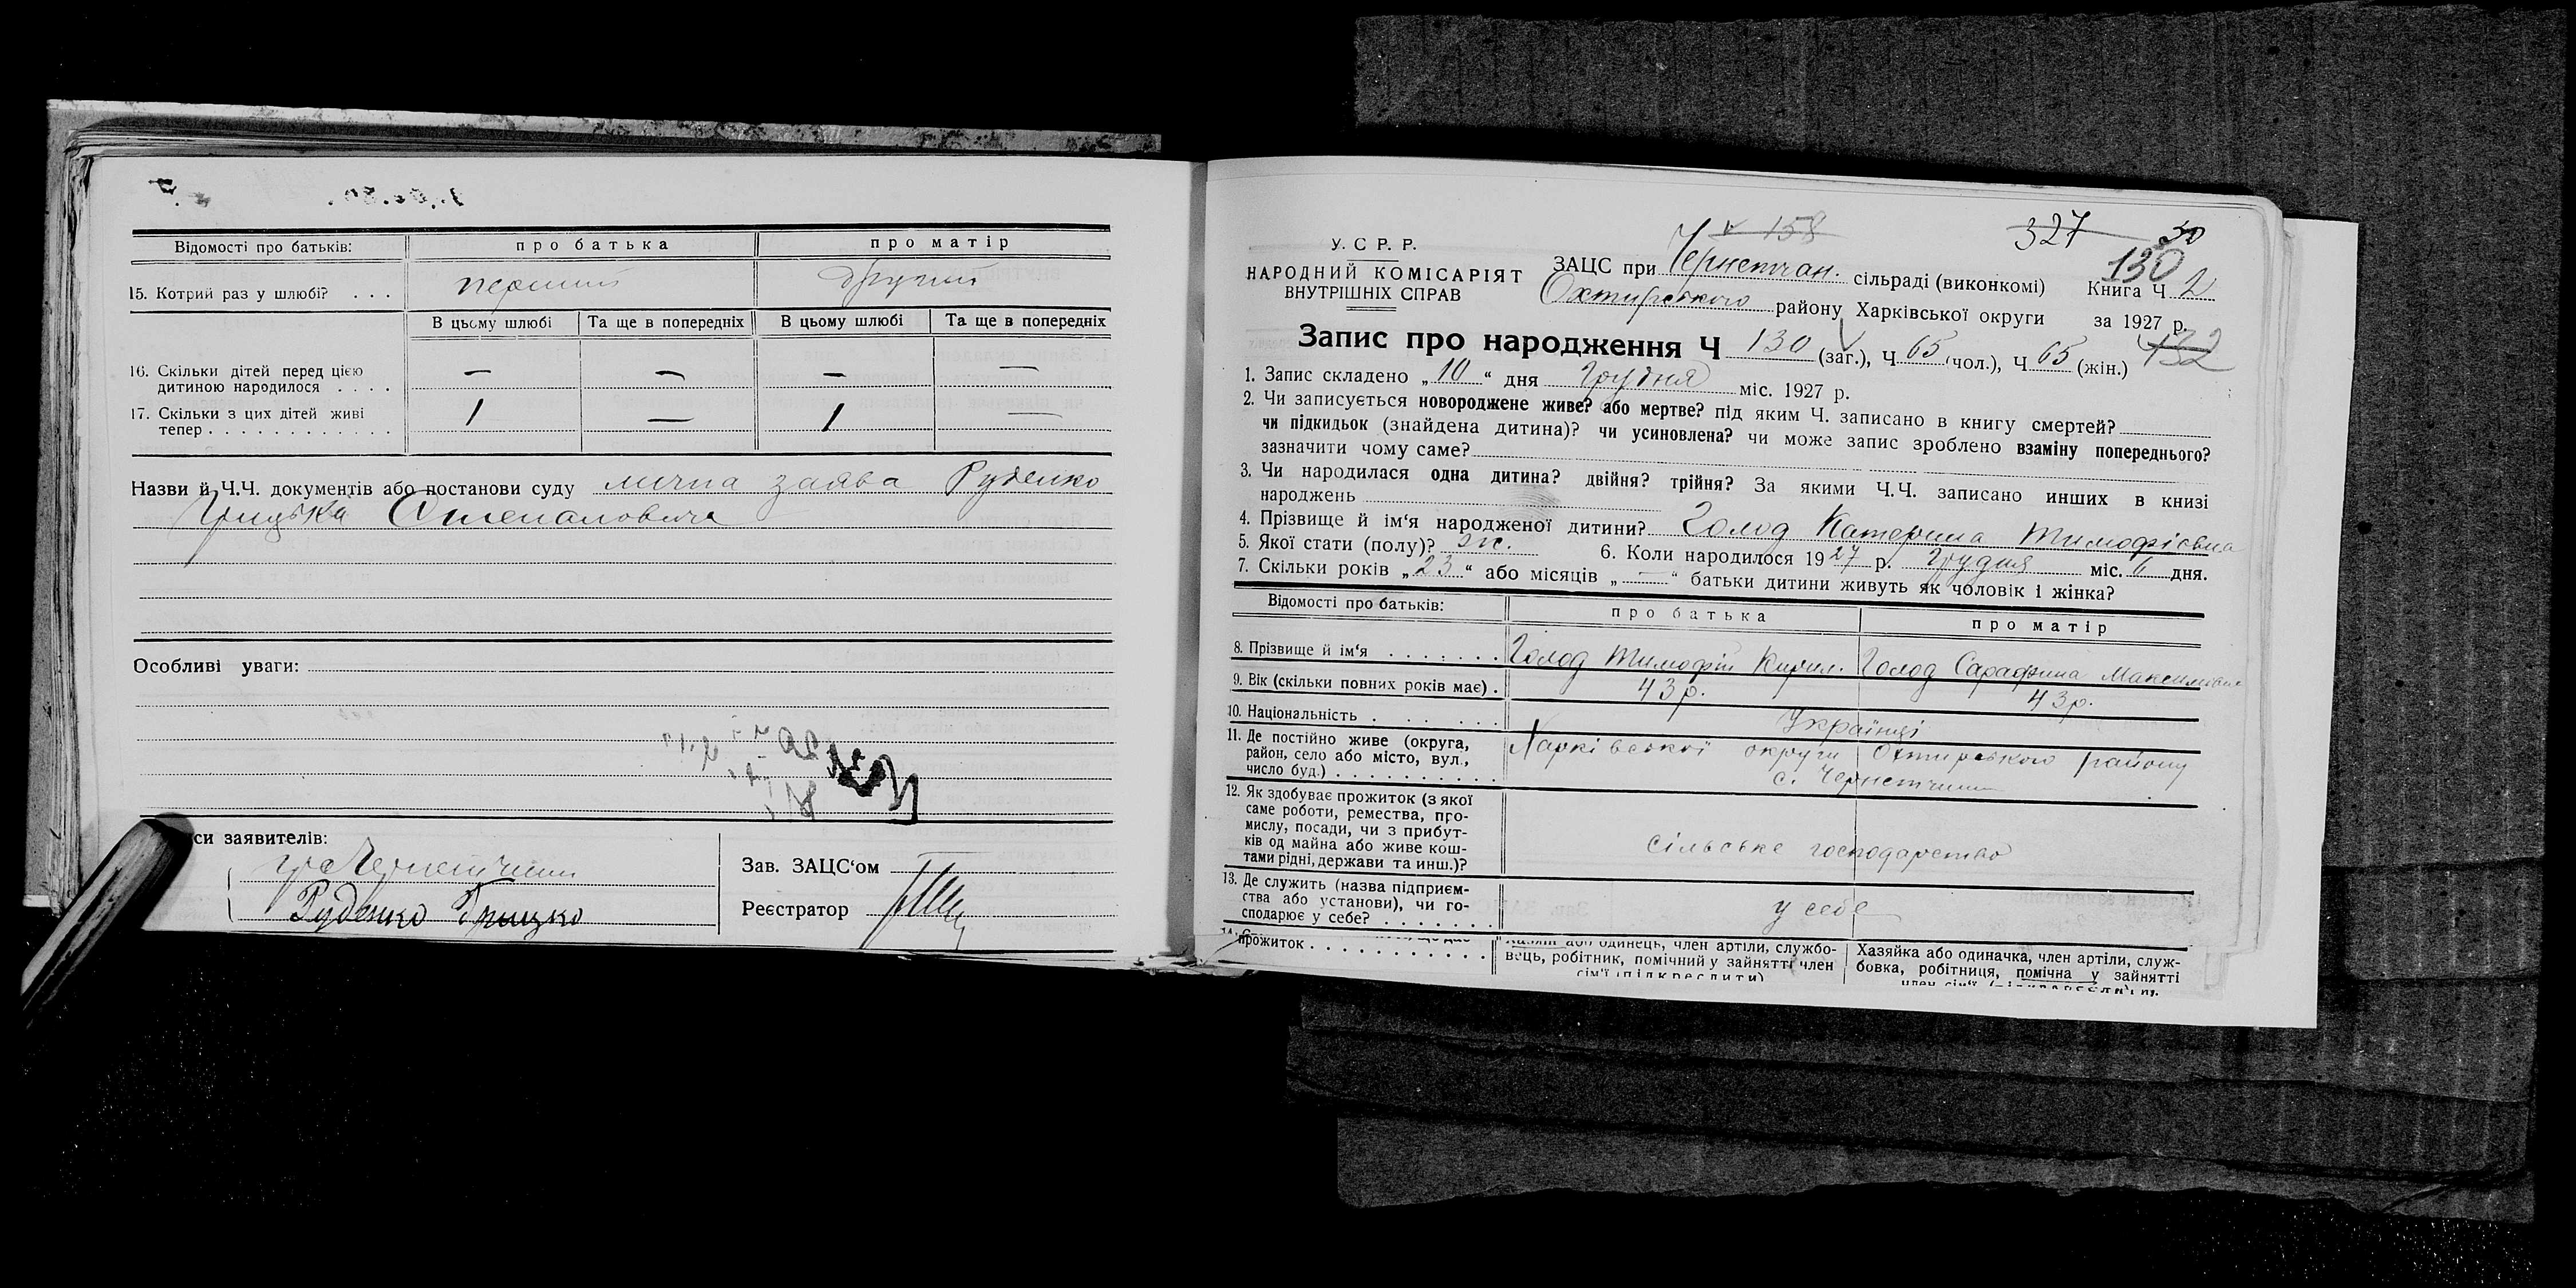 Відомості про батьків: про батька про матір
15. Котрий раз у шлюбі? . . . перший другий
В цьому шлюбі Та ще в попередніх В цьому шлюбі Та ще в попередніх
16. Скільки дітей перед цією — — — —
дитиною народилося . . . .
17. Скільки з цих дітей живі 1 — 1 —
тепер . . . . . . . . . . . . .
Назви й Ч.Ч. документів або постанови суду лична заява Руденко
Грицька Степановича
Особливі уваги:
си заявителів:
гр. с. Чернетчини
Руденко Грицко
Зав. ЗАЦС‘ом
Реєстратор
158
327 30
У. С Р. Р. 130
НАРОДНИЙ КОМІСАРІЯТ ЗАЦС при Чернетчан. сільраді (виконкомі) Книга Ч 2
ВНУТРІШНІХ СПРАВ Охтирського району Харківської округи за 1927 р.
Запис про народження Ч 130 (заг.), Ч 65 (чол.), Ч 65 (жін.) 132
1. Запис складено „10“ дня Грудня міс. 1927 р.
2. Чи записується новороджене живе? або мертве? під яким Ч. записано в книгу смертей?
чи підкидьок (знайдена дитина)? чи усиновлена? чи може запис зроблено взаміну попереднього?
зазначити чому саме?
3. Чи народилася одна дитина? двійня? трійня? За якими Ч.Ч. записано инших в книзі
народжень
4. Прізвище й ім‘я народженої дитини? Голод Катерина Тимофієвна
5. Якої стати (полу)? ж. 6. Коли народилося 1927 р. Грудня міс. 6 дня.
7. Скільки років „23“ або місяців „—“ батьки дитини живуть як чоловік і жінка?
Відомості про батьків: про батька про матір
8. Прізвище й ім‘я . . . . . . . Голод Тимофій Кирил. Голод Сарафина Максимовна
9. Вік (скільки повних років має) . 43 р. 43 р.
10. Національність . . . . . . Українці
11. Де постійно живе (округа, Харківської округи Охтирського району
район, село або місто, вул., с. Чернетчини
число буд.) . . . . . . . . . .
12. Як здобуває прожиток (з якої
саме роботи, ремества, про-
мислу, посади, чи з прибут-
ків од майна або живе кош- сільське господарство
тами рідні, держави та инш.)?
13. Де служить (назва підприєм-
ства або установи), чи го- у себе
сподарює у себе? . . . . . .
прожиток . . . . . . . . . . Хазяїн або одинець, член артіли, службо- Хазяйка або одиначка, член артіли, служ-
вець, робітник, помічний у зайнятті член бовка, робітниця, помічна у зайнятті
сім‘ї (підкреслити) член сім‘ї (підкреслити).